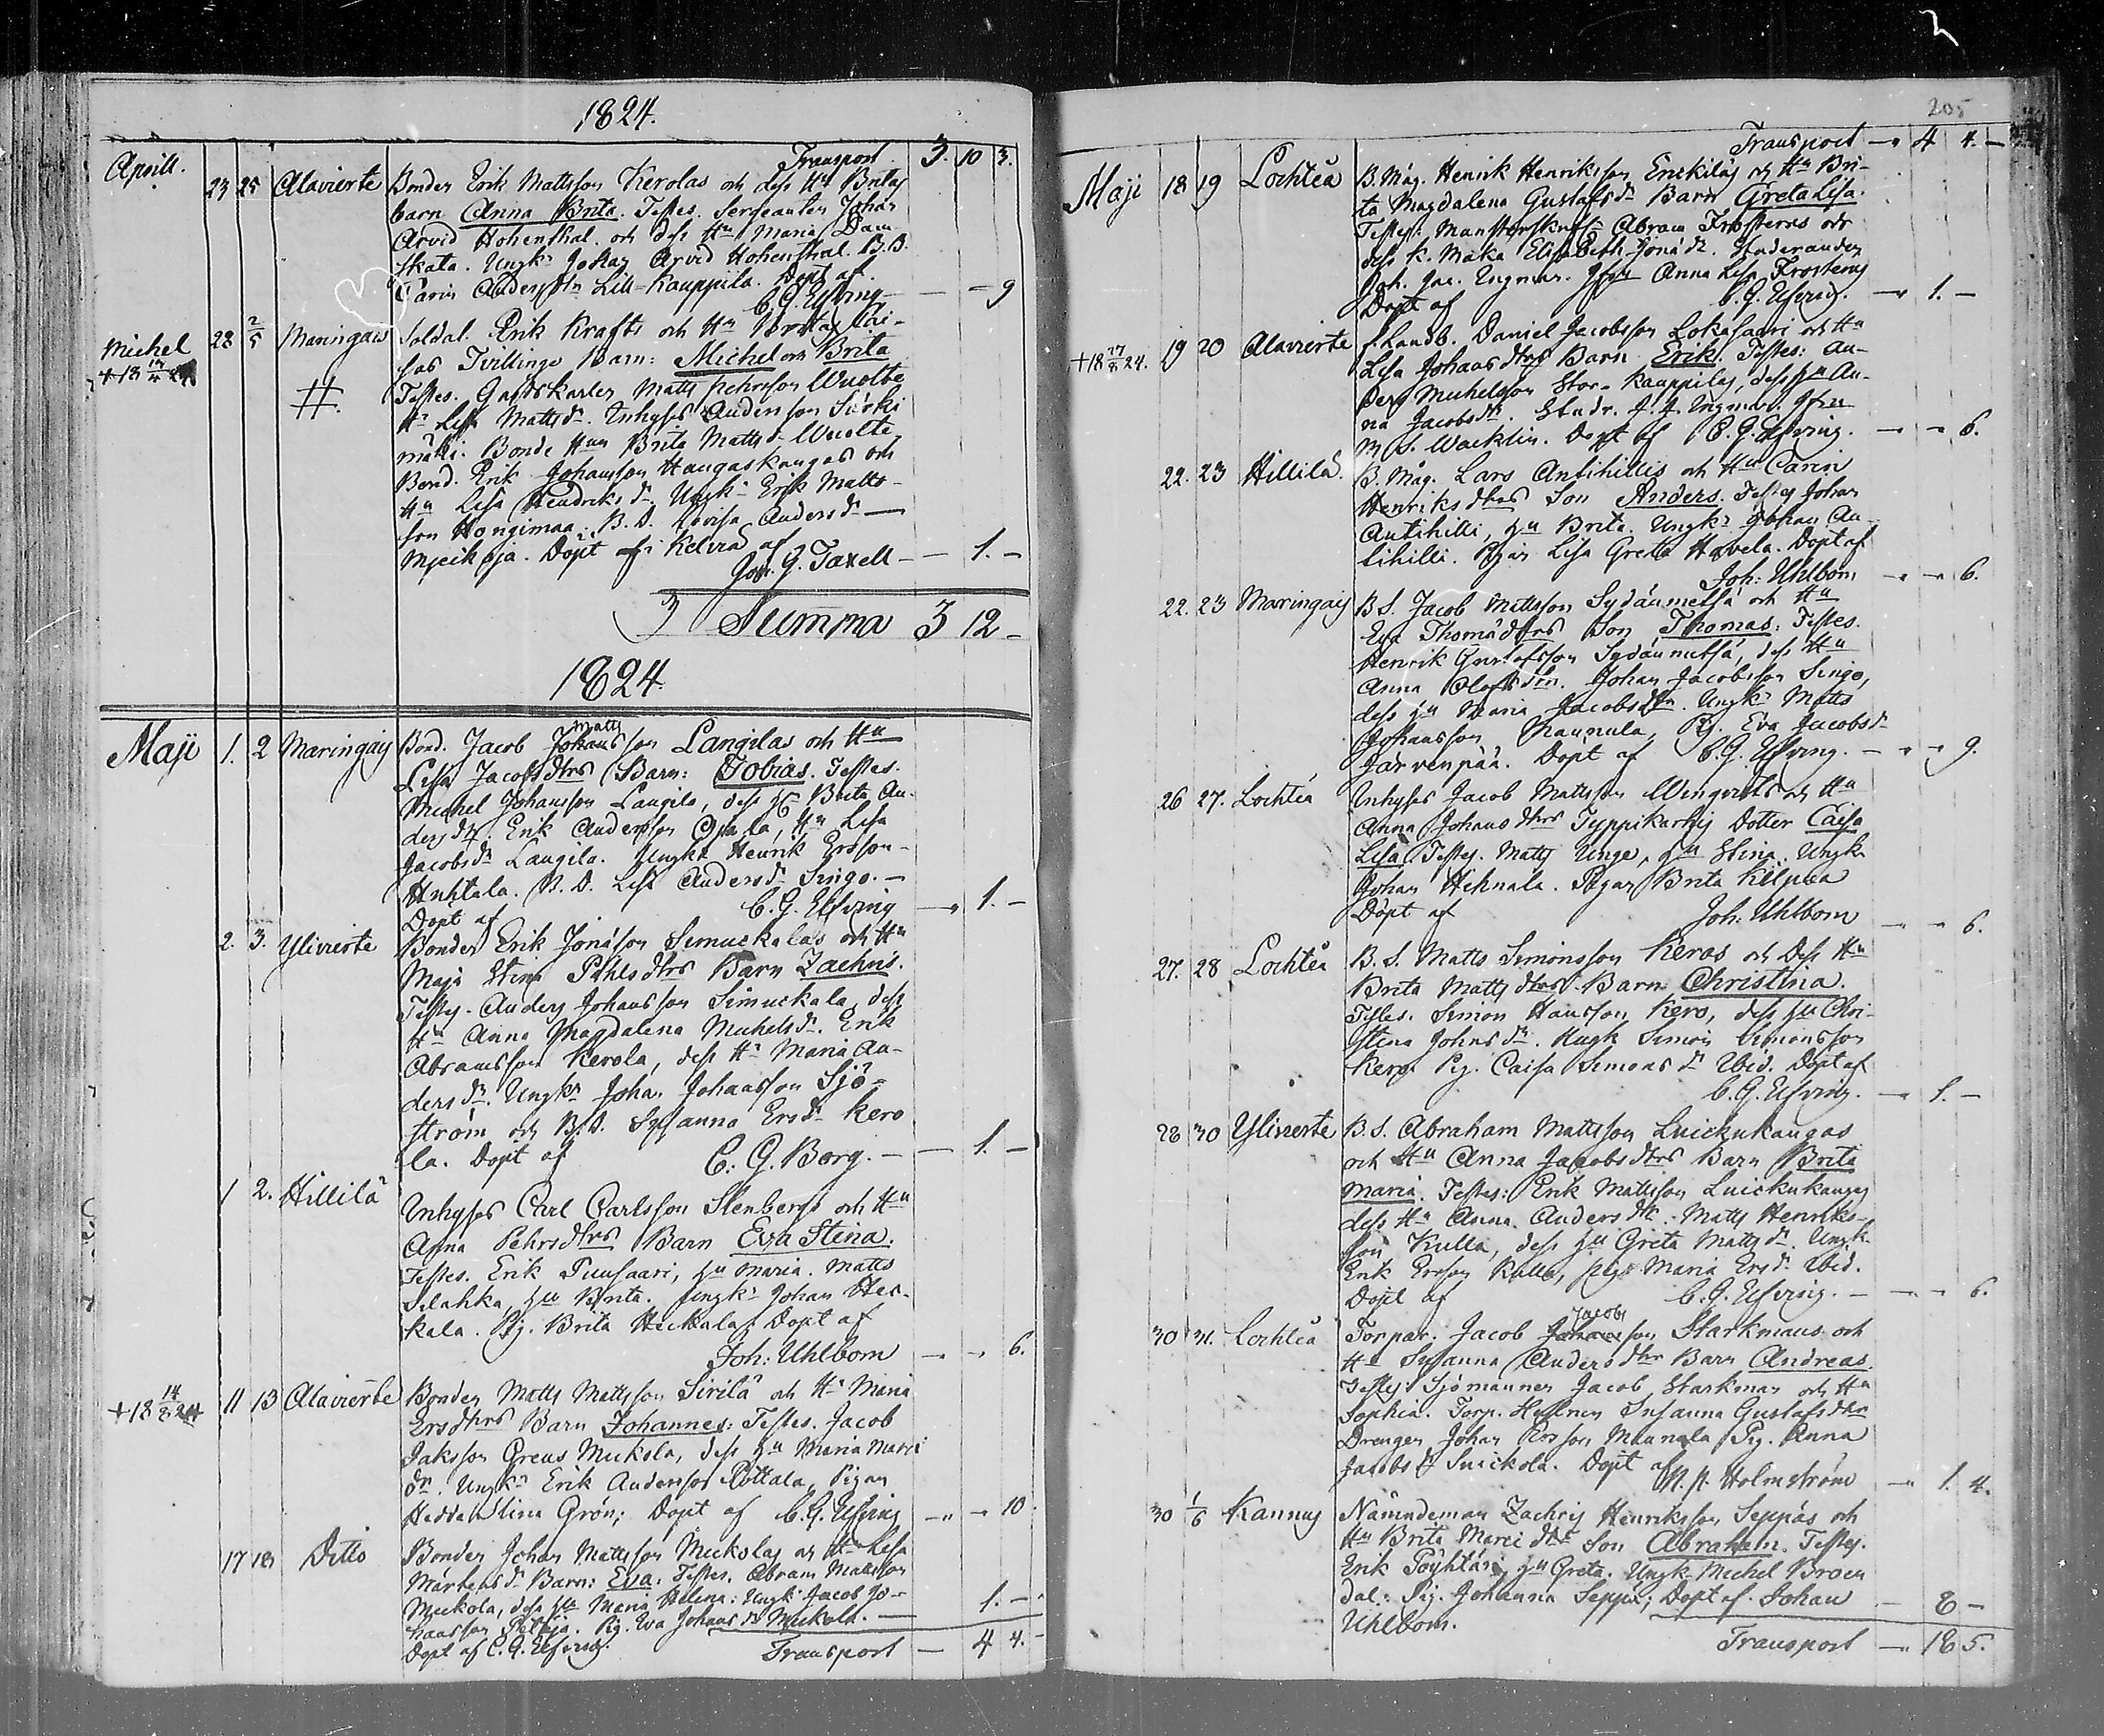 1824.
Aprill. Transport 3. 10 3.
23 25 Alavierte Bonden Erik Mattsson Kerolas och dess Hu Britas
barn Anna Brita. Testes. Sergeanten Johan
Arvid Hohenthal. och dess Hu Maria Dam
skata. Ungk: Johan Arvid Hohenthal. B.D.
Carin Andersdtr Lill-Kauppila. Döpt af.
C. G. Elfving — — 9
Michel 28 2/5 Maringais Soldat. Erik Krafts och Hu Brita Cai-
+18 24 sas Tvillinge Barn: Michel och Brita
#. Testes. Gastkarlen Matts Wuolte
Hu Lisa Mattsdr. Inhyses Andersson Särki
mäki. Bonde Hun Brita Mattsd Wuolte,
Bond. Erik Johansson Haugaskangas och
Hu Lisa Hendriksdr. Ungk: Erik Matts-
son Hongimaa: B. D. Lovisa Andersdr —
Döpt i Kelviå af
Joh. G. Taxell — — 1. —
Summa 3 12 —
1824.
Maji 1. 2 Maringais Bond. Jacob Johansson Matts Langilas och Hu
Lisa Jacobsdtrs Barn: Tobias. Testes.
Michel Johansson Langila, dess Hu Brita An-
dersdr. Erik Andersson Ojala, Hu Lisa
Jacobsdr Langila. Ungka Henrik Ersson-
Huhtala. B. D. Lisa Andersdr Singo. —
Döpt af C. G. Elfving — 1. —
2. 3. Ylivierte Bonden Erik Jonasson Simuckalas och Hu
Maja Stina Påhlsdtrs Barn Zachris.
Testes. Anders Johansson Simuckala, dess
Hu Anna Magdalena Michelsdr. Erik
Abramsson Kerola, dess Hu Maria An-
dersdr. Ungkn Johan Johansson Sjö-
ström och B.D. Susanna Ersdr Kero
la. Döpt af C. G. Borg. — — 1. —
1 2. Hillilä Inhyses Carl Carlsson Stenbergs och Hu
Anna Pehrsdtrs Barn Eva Stina.
Testes. Erik Puusaari, Hu Maria. Matts
Hu Brita. Ungk: Johan Hec-
kala. Pig. Brita Heckala. Döpt af
Joh: Uhlbom — 6.
+18 14/8 24 11 13 Alavierte Bonden Matts Mattsson Sirilä och Hu Maria
Ersdtrs Barn Johannes: Testes. Jacob
Jaksson Greus Mickola, dess Hu Maria Marci
dr. Ungkn Erik Andersson Pottala, Pigan
Hedda Stina Grön; Döpt af C. G. Elfving — 10.
17 18 Ditto Bonden Johan Mattsson Mickolas och Hu Lisa
Mårtensdr Barn: Eva. Testes. Abram Mattsson
Mickola, dess Hu Maria Helena: Ungk: Jacob Jo-
hansson Pig. Eva Johansdr Mickola. — 1. —
Döpt af C. G. Elfving. Transport — 4 4. —
205
Transport — 4 4. —
Maji 18 19 Lochteå B. Måg. Henrik Henriksson Erickiläs och Hu Bri-
ta Magdalena Gustafsdr Barn Greta Lisa.
Testes: Abram Frosterus och
dess k. Maka Elisabeth Studeranden
Joh. Jac. Ingman. Jfru Anna Lisa Frosterus
Döpt af C. G. Elfving. — 1. —
+18 17/8 24. 19 20 Alavierte f. Landb. Daniel Jacobsson Lokasaari och Hu
Lisa Johansdtrs Barn Erik. Testes: An-
ders Michelsson Stor-Kauppilas, dess Hu An-
na Jacobsdr. Studr. J. J. Ingman. Jfru
M S. Wacklin. Döpt af C. G. Elfving. — 6.
22. 23 Hillilä. B. Måg. Lars Antihillis och Hu Carin
Henriksdtrs Son Anders. Testes Johan
Antihilli, Hu Brita. Ungkn Johan An-
tihilli. Pigan Lisa Greta Havela. Döpt af
Joh: Uhlbom — 6.
22. 23 Maringais B. S. Jacob Mattsson Sydänmetsä och Hu
Eva Thomædtrs Son Thomas. Testes.
Henrik Gustafsson Sydänmetsä, dess Hu
Anna Olofsdtr. Johan Jacobsson Singo,
dess Hu Maria Jacobsdtr. Ungkn Matts
Johansson Maunula, Pig. Eva Jacobsdr
Järvenpää. Döpt af C. G. Elfving. — 9.
26 27. Lochteå Inhyses Jacob Mattsson Winqvists och Hu
Anna Johansdtrs Typpikarhis Dotter Caisa
Lisa. Testes. Matts Unge, Hu Stina. Ungk.
Johan Hihnala. Pigan Brita Kilpua
Döpt af Joh: Uhlbom — 6.
27. 28 Lochteå B. S. Matts Simonsson Keros och Dess Hu
Brita Mattsdtrs Barn Christina.
Testes. Simon Hansson Kero, dess Hu Chri-
stina Johnsdr. Ungk Simon Simonsson
Kero. Pig. Caisa Simonsdr Ibid. Döpt af
C. G. Elfving. — 1. —
28 30 Ylivierte B. S. Abraham Mattsson Luickukangas
och Hu Anna Jacobsdtrs Barn Brita
Maria. Testes: Erik Mattsson Luickukangas
dess Hu Anna Andersdtr. Matts Henriks-
son Kulla, dess Hu Greta Mattsdr. Ungk.
Erik Ersson Kulla, Pig. Maria Ersdr Ibid.
Döpt af C. G. Elfving. — 6.
30 31. Lochteå Torpar. Jacob Johansson Jacobs Starkmans och
Hu Susanna Andersdtrs Barn Andreas.
Testes: Sjömannen Jacob Starkman och Hu
Sophia. Torp. Susanna Gustafsdtr
Drengen Johan Ersson Maunula Pig. Anna
Jacobsdr Snickola. Döpt af
Holmström — 1. 4.
30 1/6 Kannus Nämndeman Zachris Henriksson Seppäs och
Hu Brita Marci dtrs Son Abraham. Testes.
Erik Pöyhtäri, Hu Greta. Ungk. Michel Broen
dal.: Pig. Johanna Seppä; Döpt af. Johan — 8 —
Uhlbom.
Transport — 18 5.